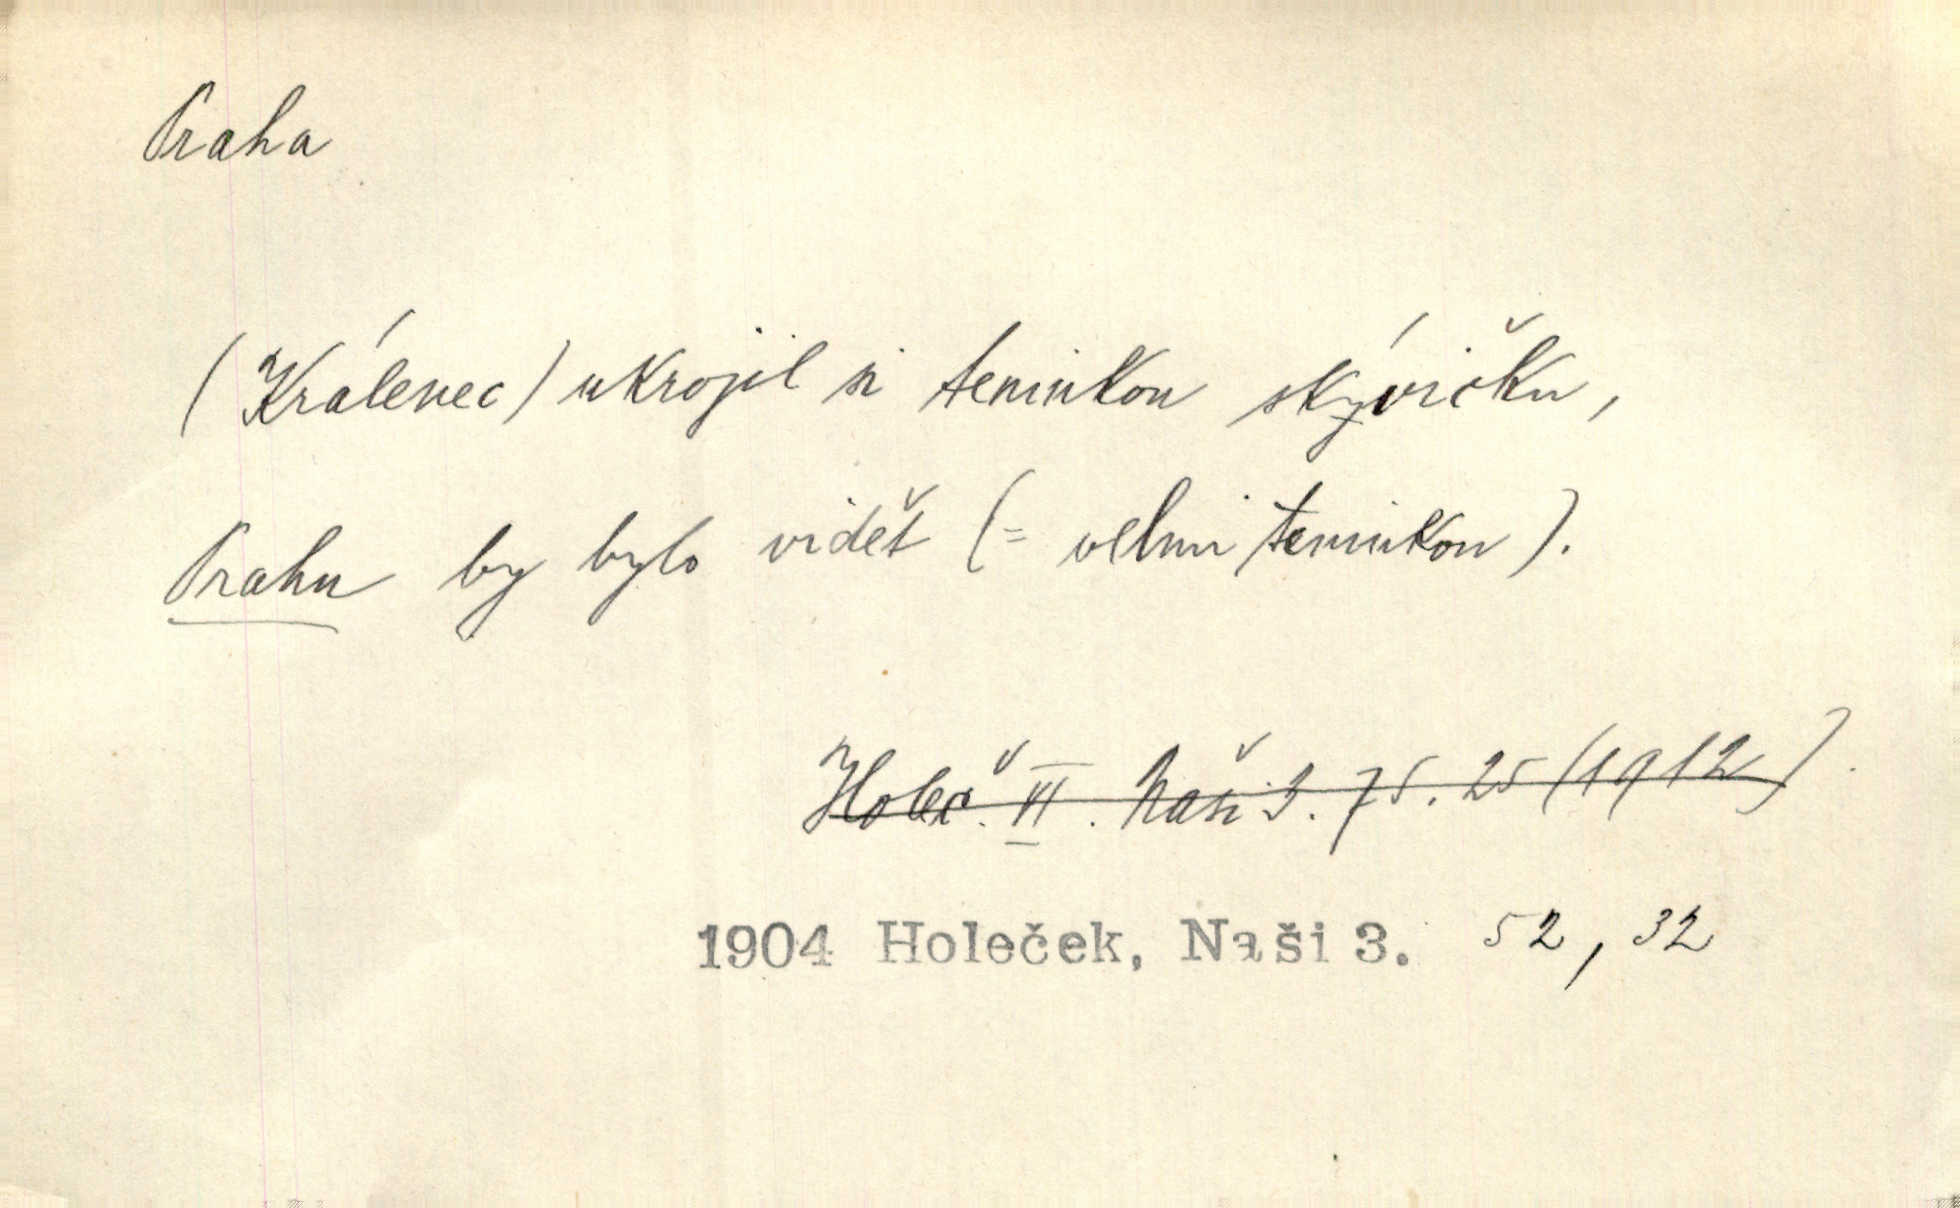 Praha
(Králenec) ukrojil si teninkou skývičku,
Prahu by bylo vidět (= velmi teninkou).
Holeč. VI. Naši 3. 75. 25 (1912).
1904 Holeček, Naši 3. 52, 32